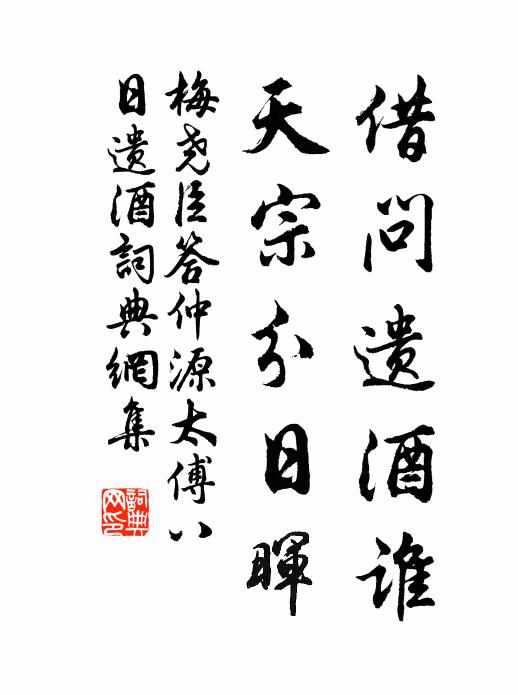 借问遗酒谁
天宗分日暉
梅尧臣答仲源太傅八
日遗酒詞典網集
詞典网印